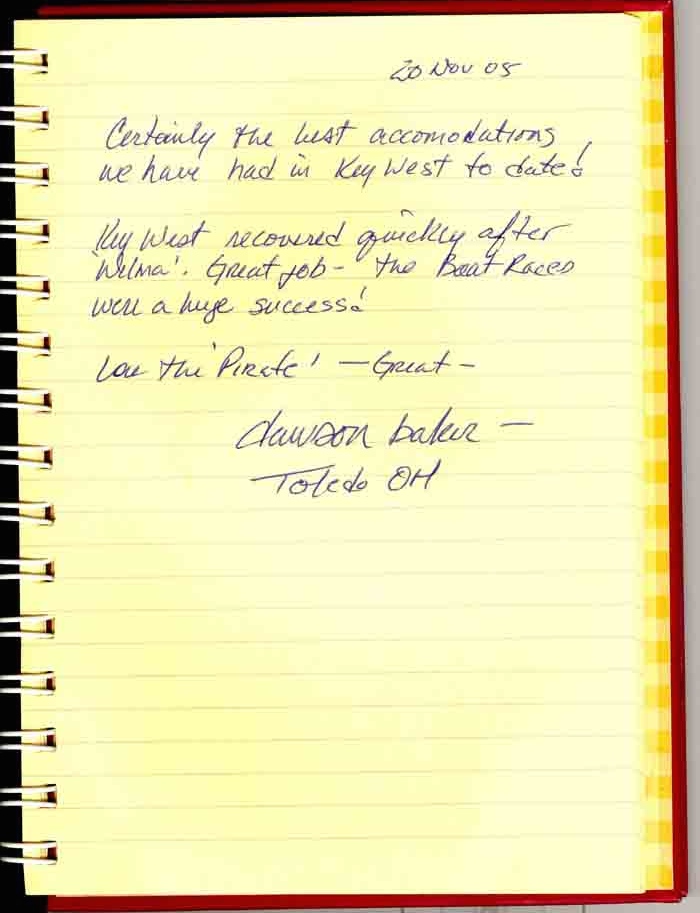 20 Nov 05
Certainly the best accomodations
we have had in Key West to date!
Key West recovered quickly after
'Wilma'. Great job - the Boat Races
were a huge success!
Love the 'Pirate' - Great -
dawson baker -
Toledo OH